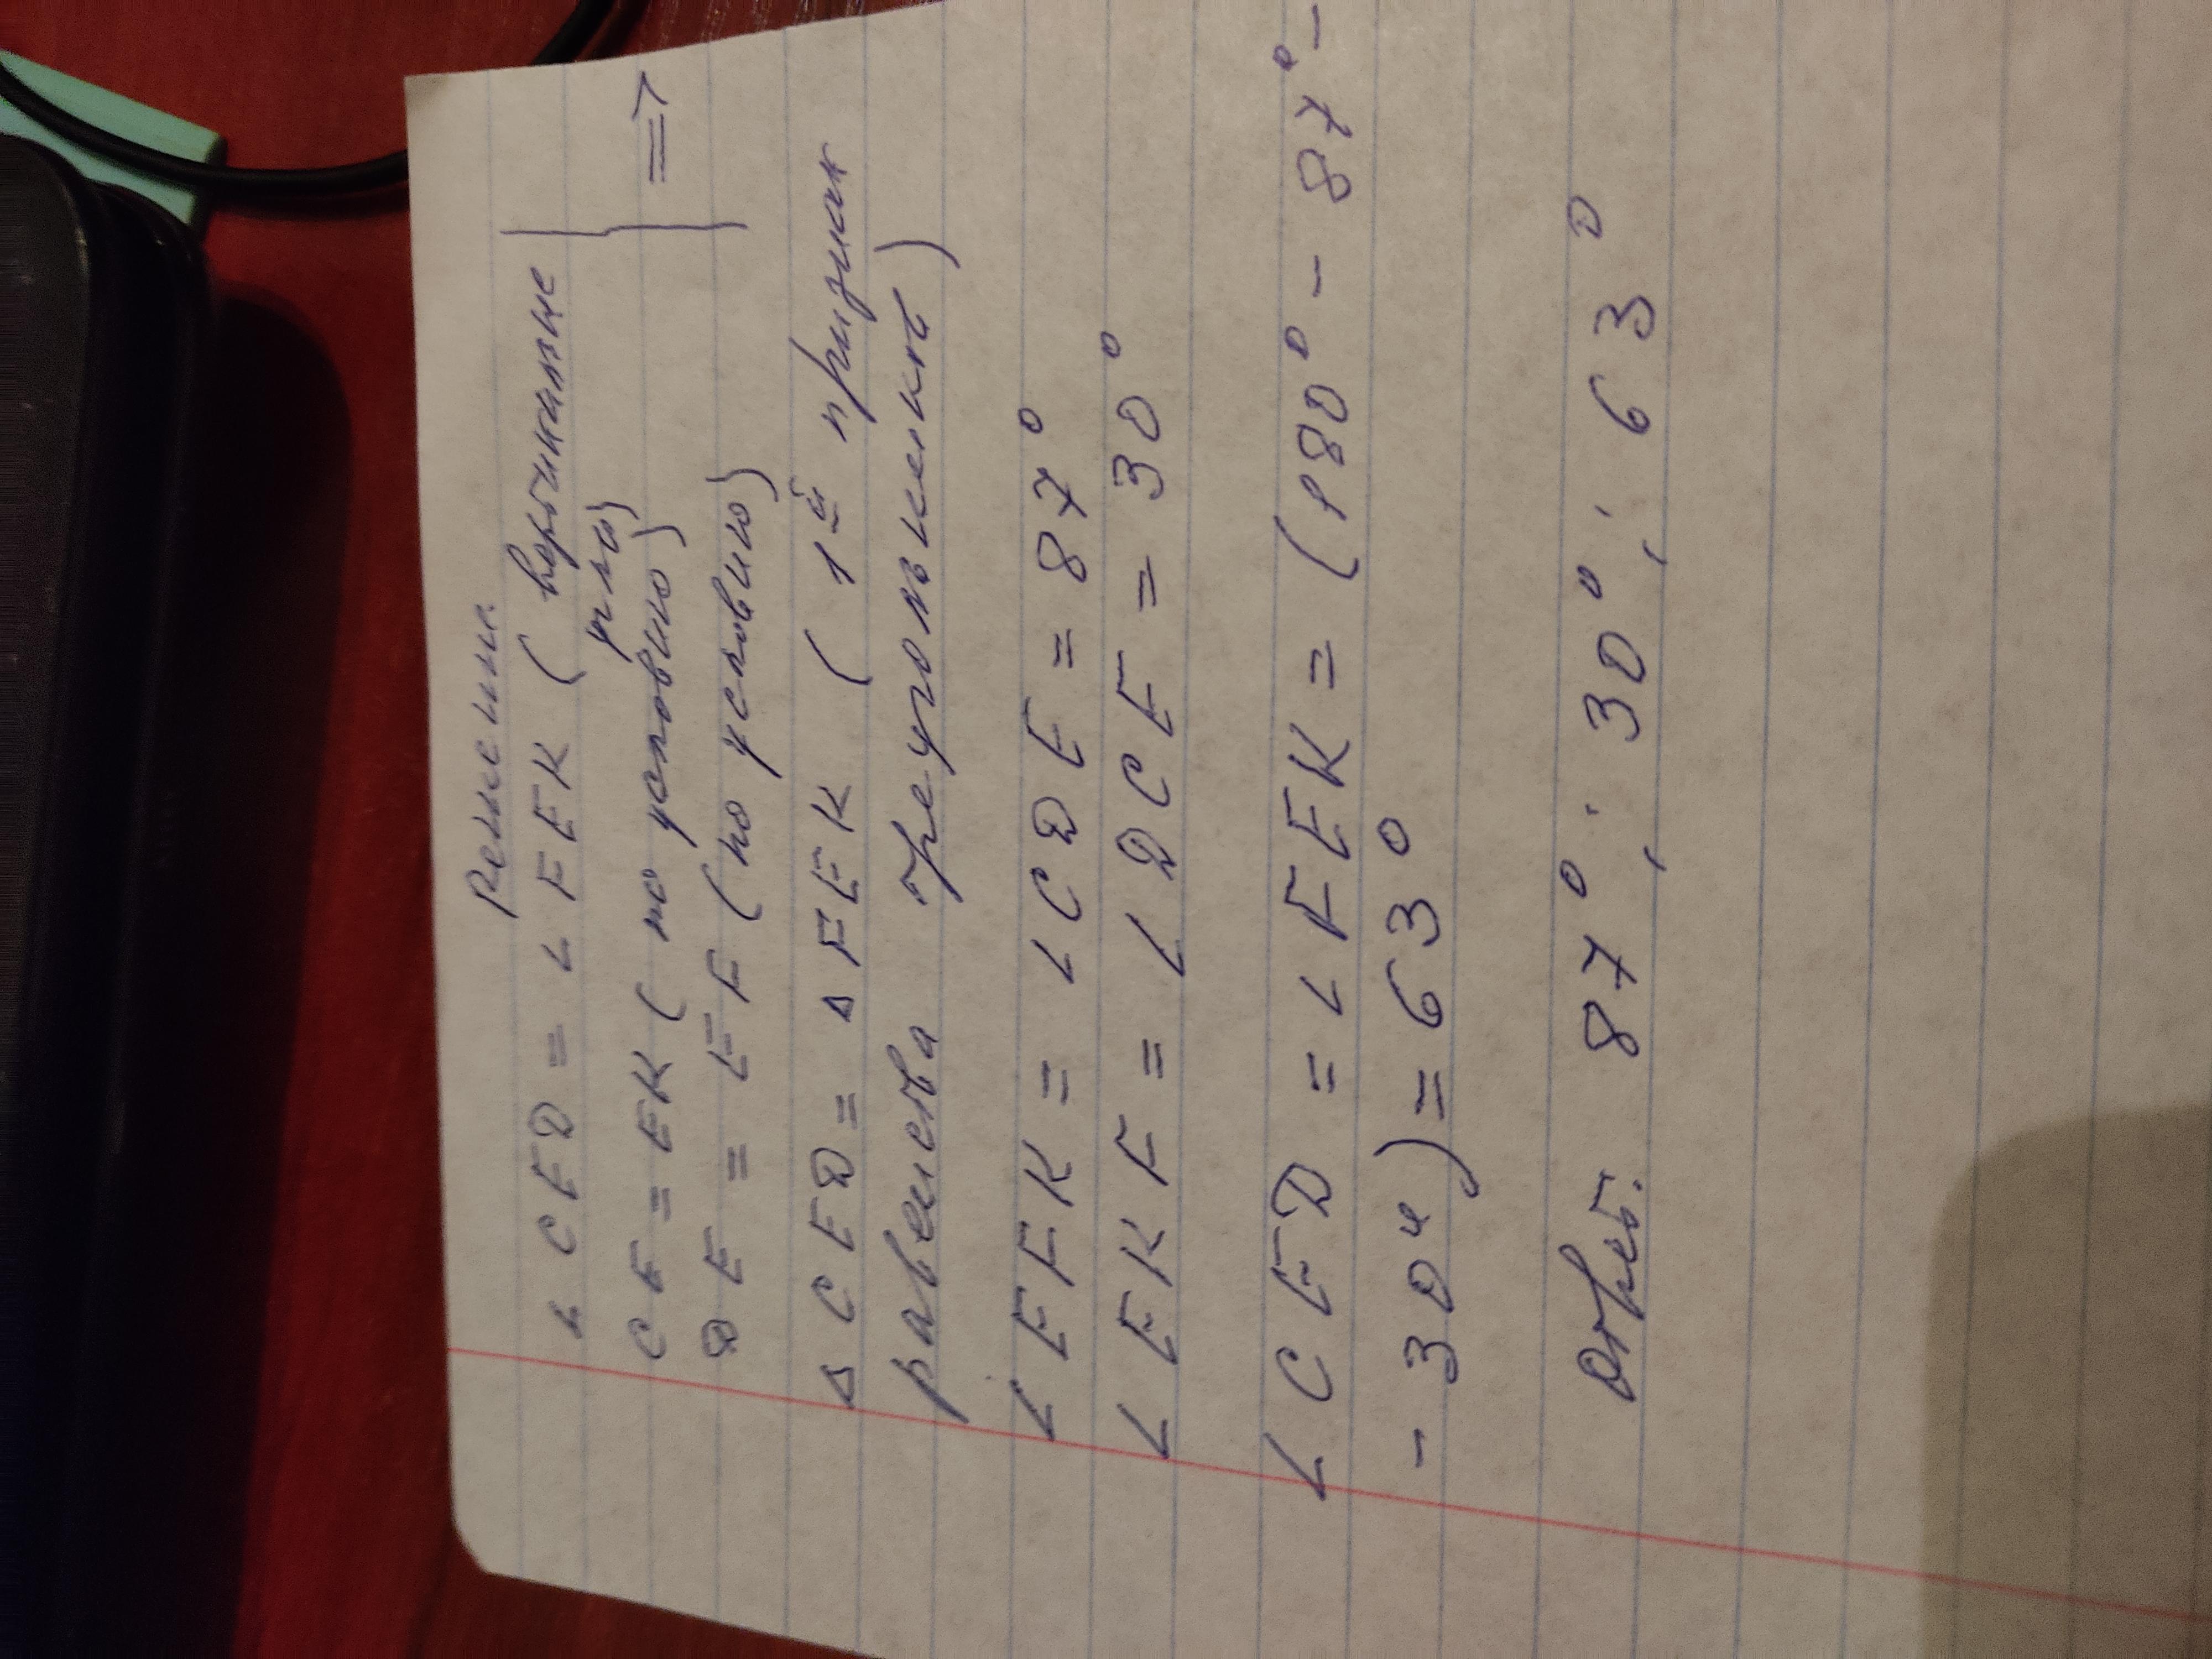 Решение.
∠ CED = ∠ FEK ( вертикальные
углы)
CE = EK ( по условию) } =>
DE = EF ( по условию)
Δ CED = Δ FEK ( 1й признак
равенства треугольников)
∠ EFK = ∠ CDE = 87°
∠ EKF = ∠ DCE = 30°
∠ CED = ∠ FEK = (180° - 87° -
- 30°) = 63°
Ответ: 87°; 30°; 63°